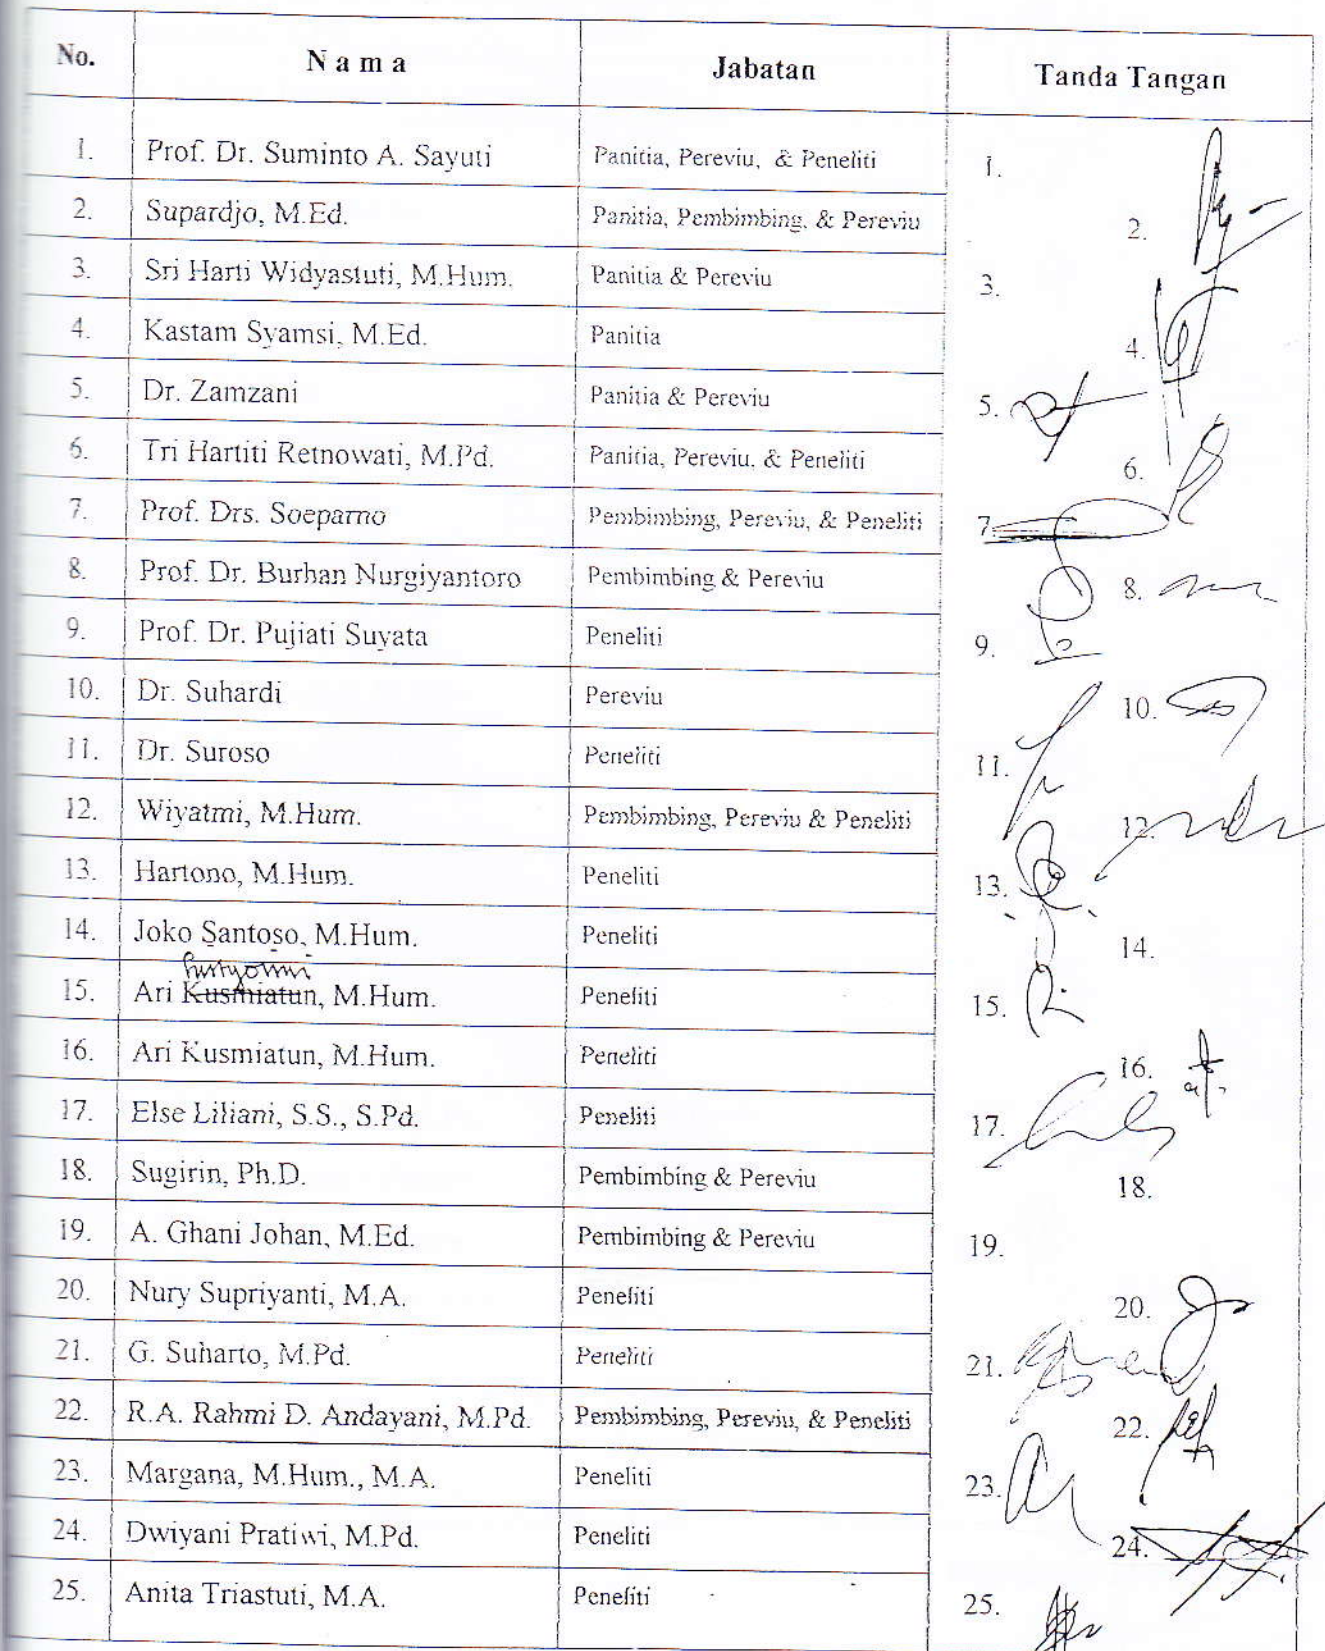 No. Nama Jabatan Tanda Tangan
1. Prof. Dr. Suminto A. Sayuti Panitia, Pereviu, & Peneliti 1.
2. Supardjo, M.Ed. Panitia, Pembimbing, & Pereviu 2.
3. Sri Harti Widyastuti, M.Hum. Panitia & Pereviu 3.
4. Kastam Syamsi, M.Ed. Panitia 4.
5. Dr. Zamzani Panitia & Pereviu 5.
6. Tri Hartiti Retnowati, M.Pd. Panitia, Pereviu, & Peneliti 6.
7. Prof. Drs. Soeparno Pembimbing, Pereviu, & Peneliti 7.
8. Prof. Dr. Burhan Nurgiyantoro Pembimbing & Pereviu 8.
9. Prof. Dr. Pujiati Suyata Peneliti 9.
10. Dr. Suhardi Pereviu 10.
11. Dr. Suroso Peneliti 11.
12. Wiyatmi, M.Hum. Pembimbing, Pereviu & Peneliti 12.
13. Hartono, M.Hum. Peneliti 13.
14. Joko Santoso, M.Hum. Peneliti 14.
15. Ari Kusmiatun, M.Hum. Peneliti 15.
16. Ari Kusmiatun, M.Hum. Peneliti 16.
17. Else Liliani, S.S., S.Pd. Peneliti 17.
18. Sugirin, Ph.D. Pembimbing & Pereviu 18.
19. A. Ghani Johan, M.Ed. Pembimbing & Pereviu 19.
20. Nury Supriyanti, M.A. Peneliti 20.
21. G. Suharto, M.Pd. Peneliti 21.
22. R.A. Rahmi D. Andayani, M.Pd. Pembimbing, Pereviu, & Peneliti 22.
23. Margana, M.Hum., M.A. Peneliti 23.
24. Dwiyani Pratiwi, M.Pd. Peneliti 24.
25. Anita Triastuti, M.A. Peneliti 25.